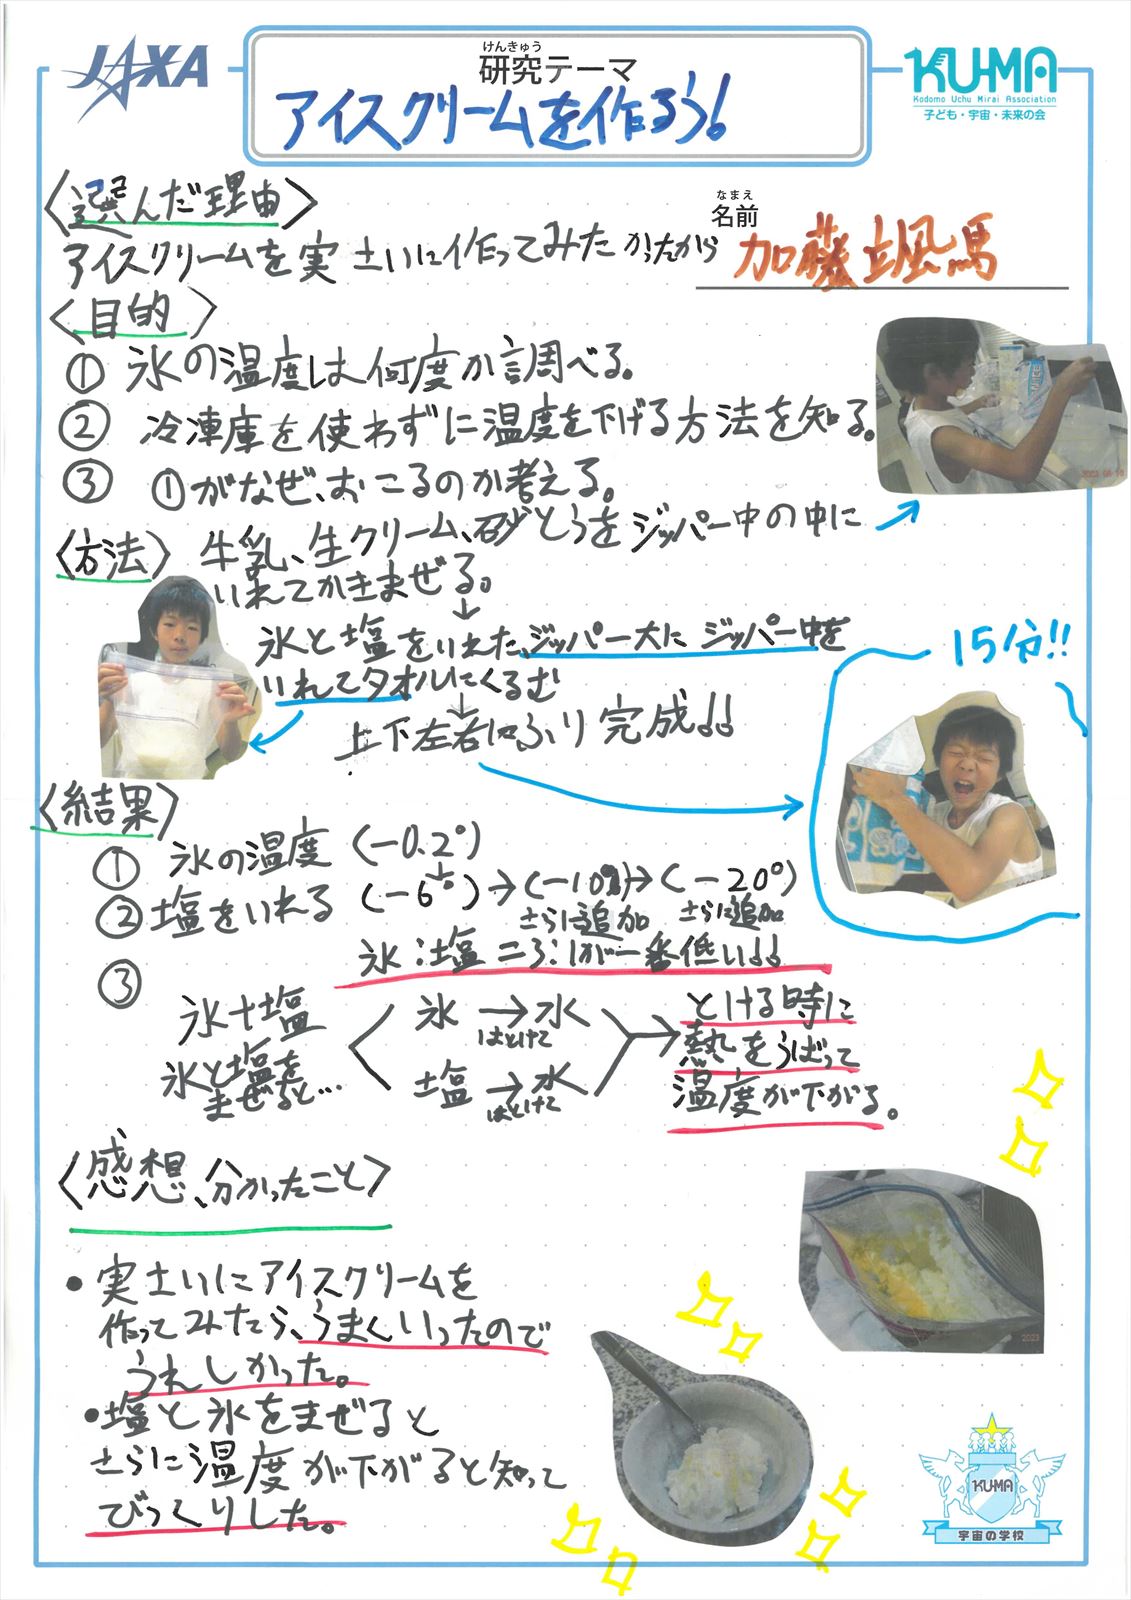 JAXA
けんきゅう
研究テーマ
アイスクリームを作ろう!
KU-MA
Kodomo Uchu Mirai Association
子ども・宇宙・未来の会
〈選んだ理由〉
アイスクリームを実さいに作ってみたかったから
なまえ
名前
加藤颯馬
〈目的〉
① 氷の温度は何度か調べる。
② 冷凍庫を使わずに温度を下げる方法を知る。
③ ①がなぜ、おこるのか考える。
〈方法〉 牛乳、生クリーム、砂とうをジッパー中の中に
いれてかきまぜる。
↓
氷と塩をいれた、ジッパー大にジッパー中を
いれてタオルにくるむ
↓
上下左右にふり完成!!
15分!!
〈結果〉
① 氷の温度 (−0.2°)
② 塩をいれる (−6°)→(−10°)→(−20°)
さらに追加 さらに追加
氷:塩=3:1が一番低い!!
③
氷+塩
氷と塩を
まぜると…
氷→水
はとけて
塩→水
はとけて
とける時に
熱をうばって
温度が下がる。
〈感想、分かったこと〉
・実さいにアイスクリームを
作ってみたら、うまくいったので
うれしかった。
・塩と氷をまぜると
さらに温度が下がると知って
びっくりした。
2023
KU-MA
宇宙の学校